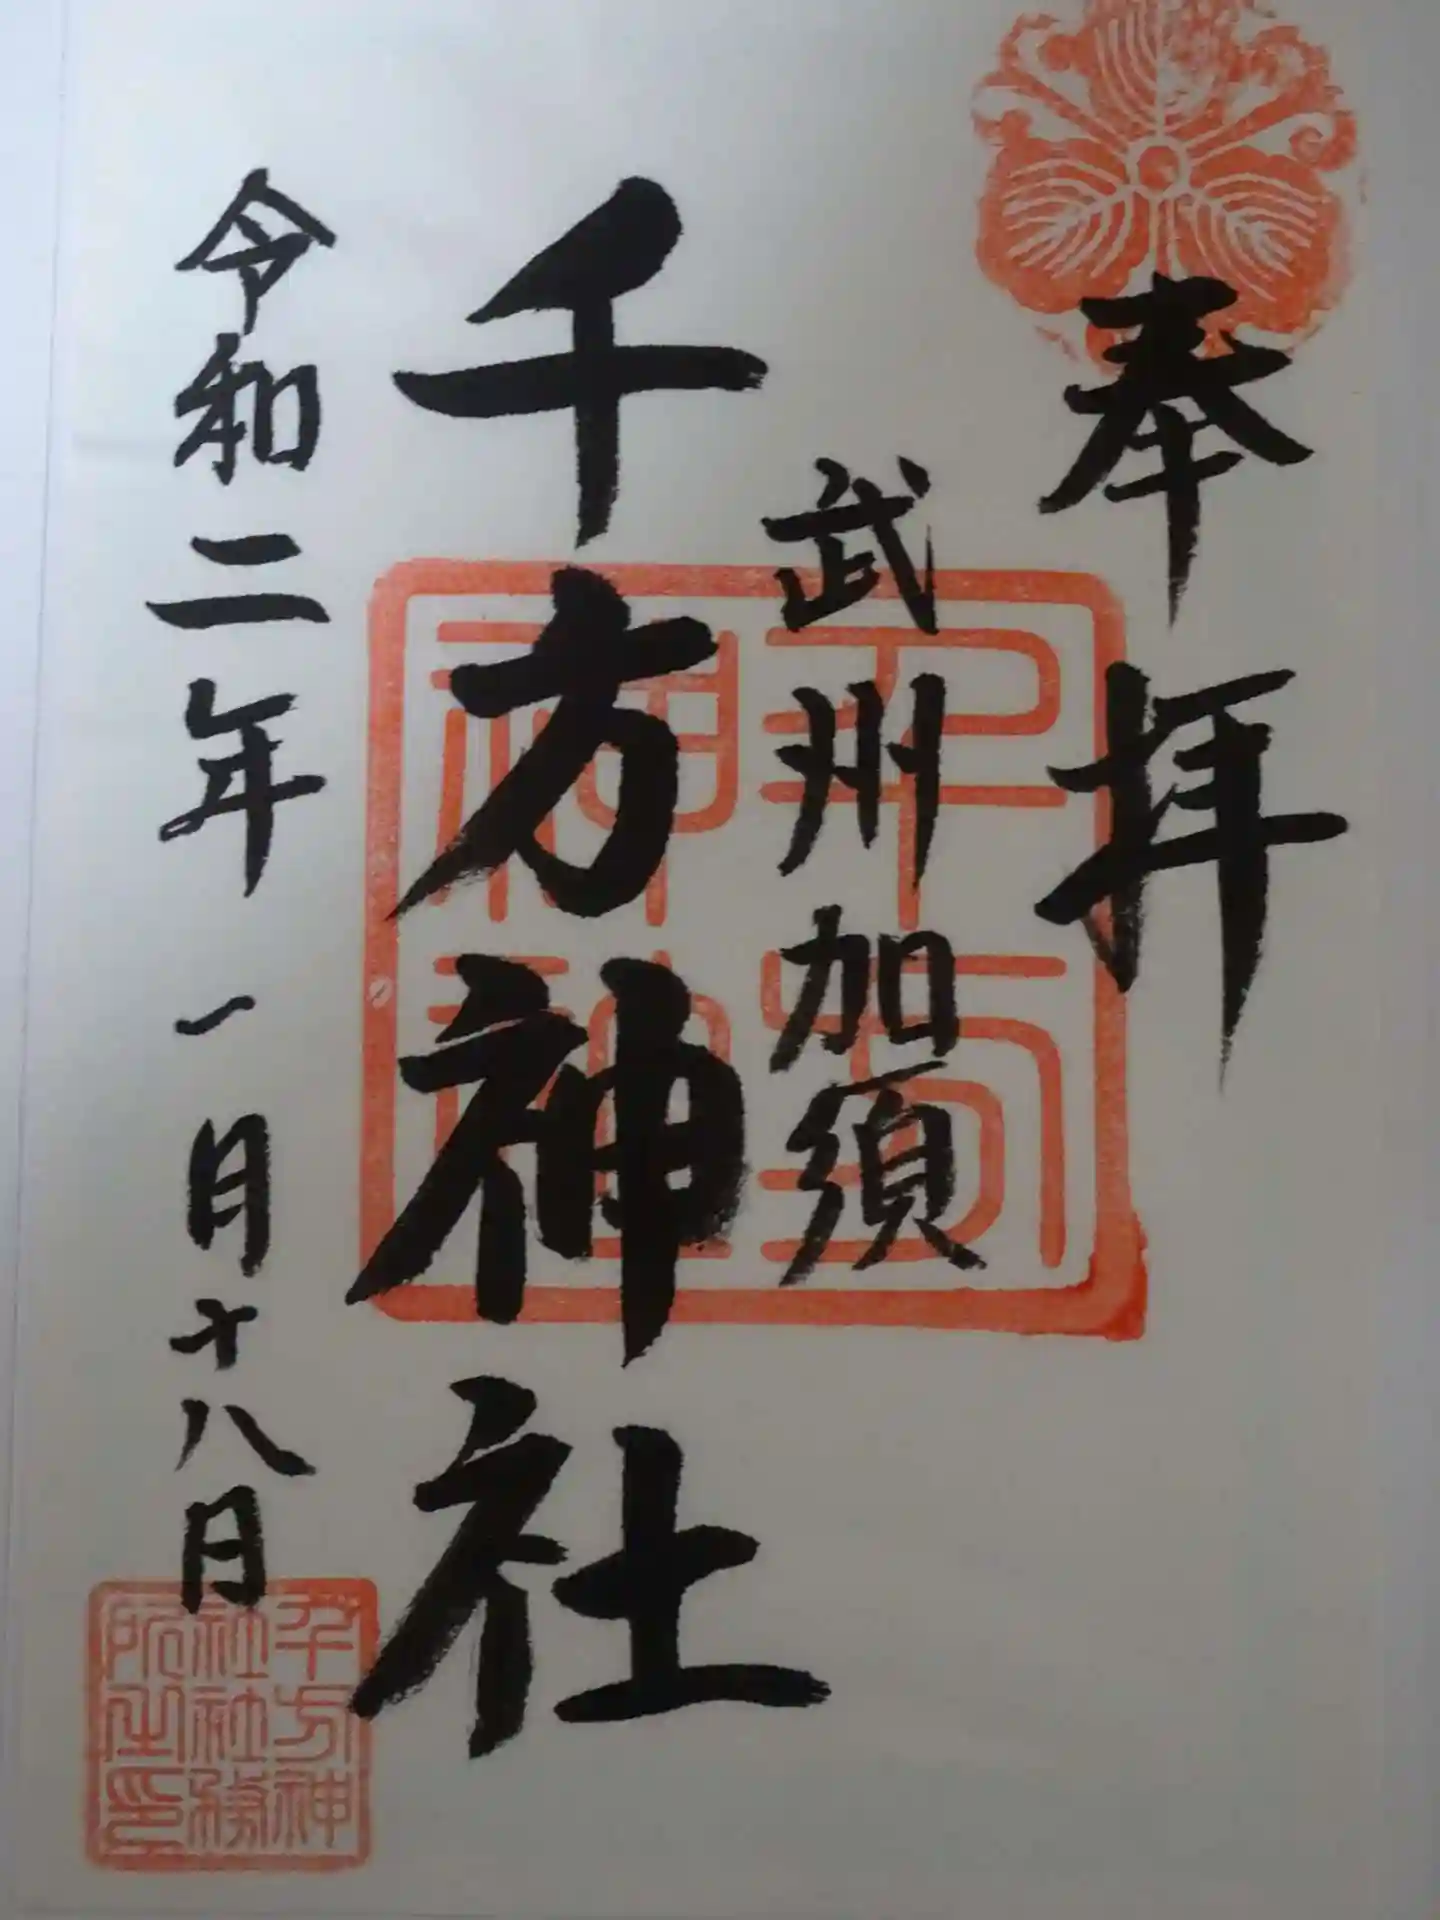 奉拝
武州加須
千方神社
令和二年一月十八日
千方神社
千方神社社務所之印